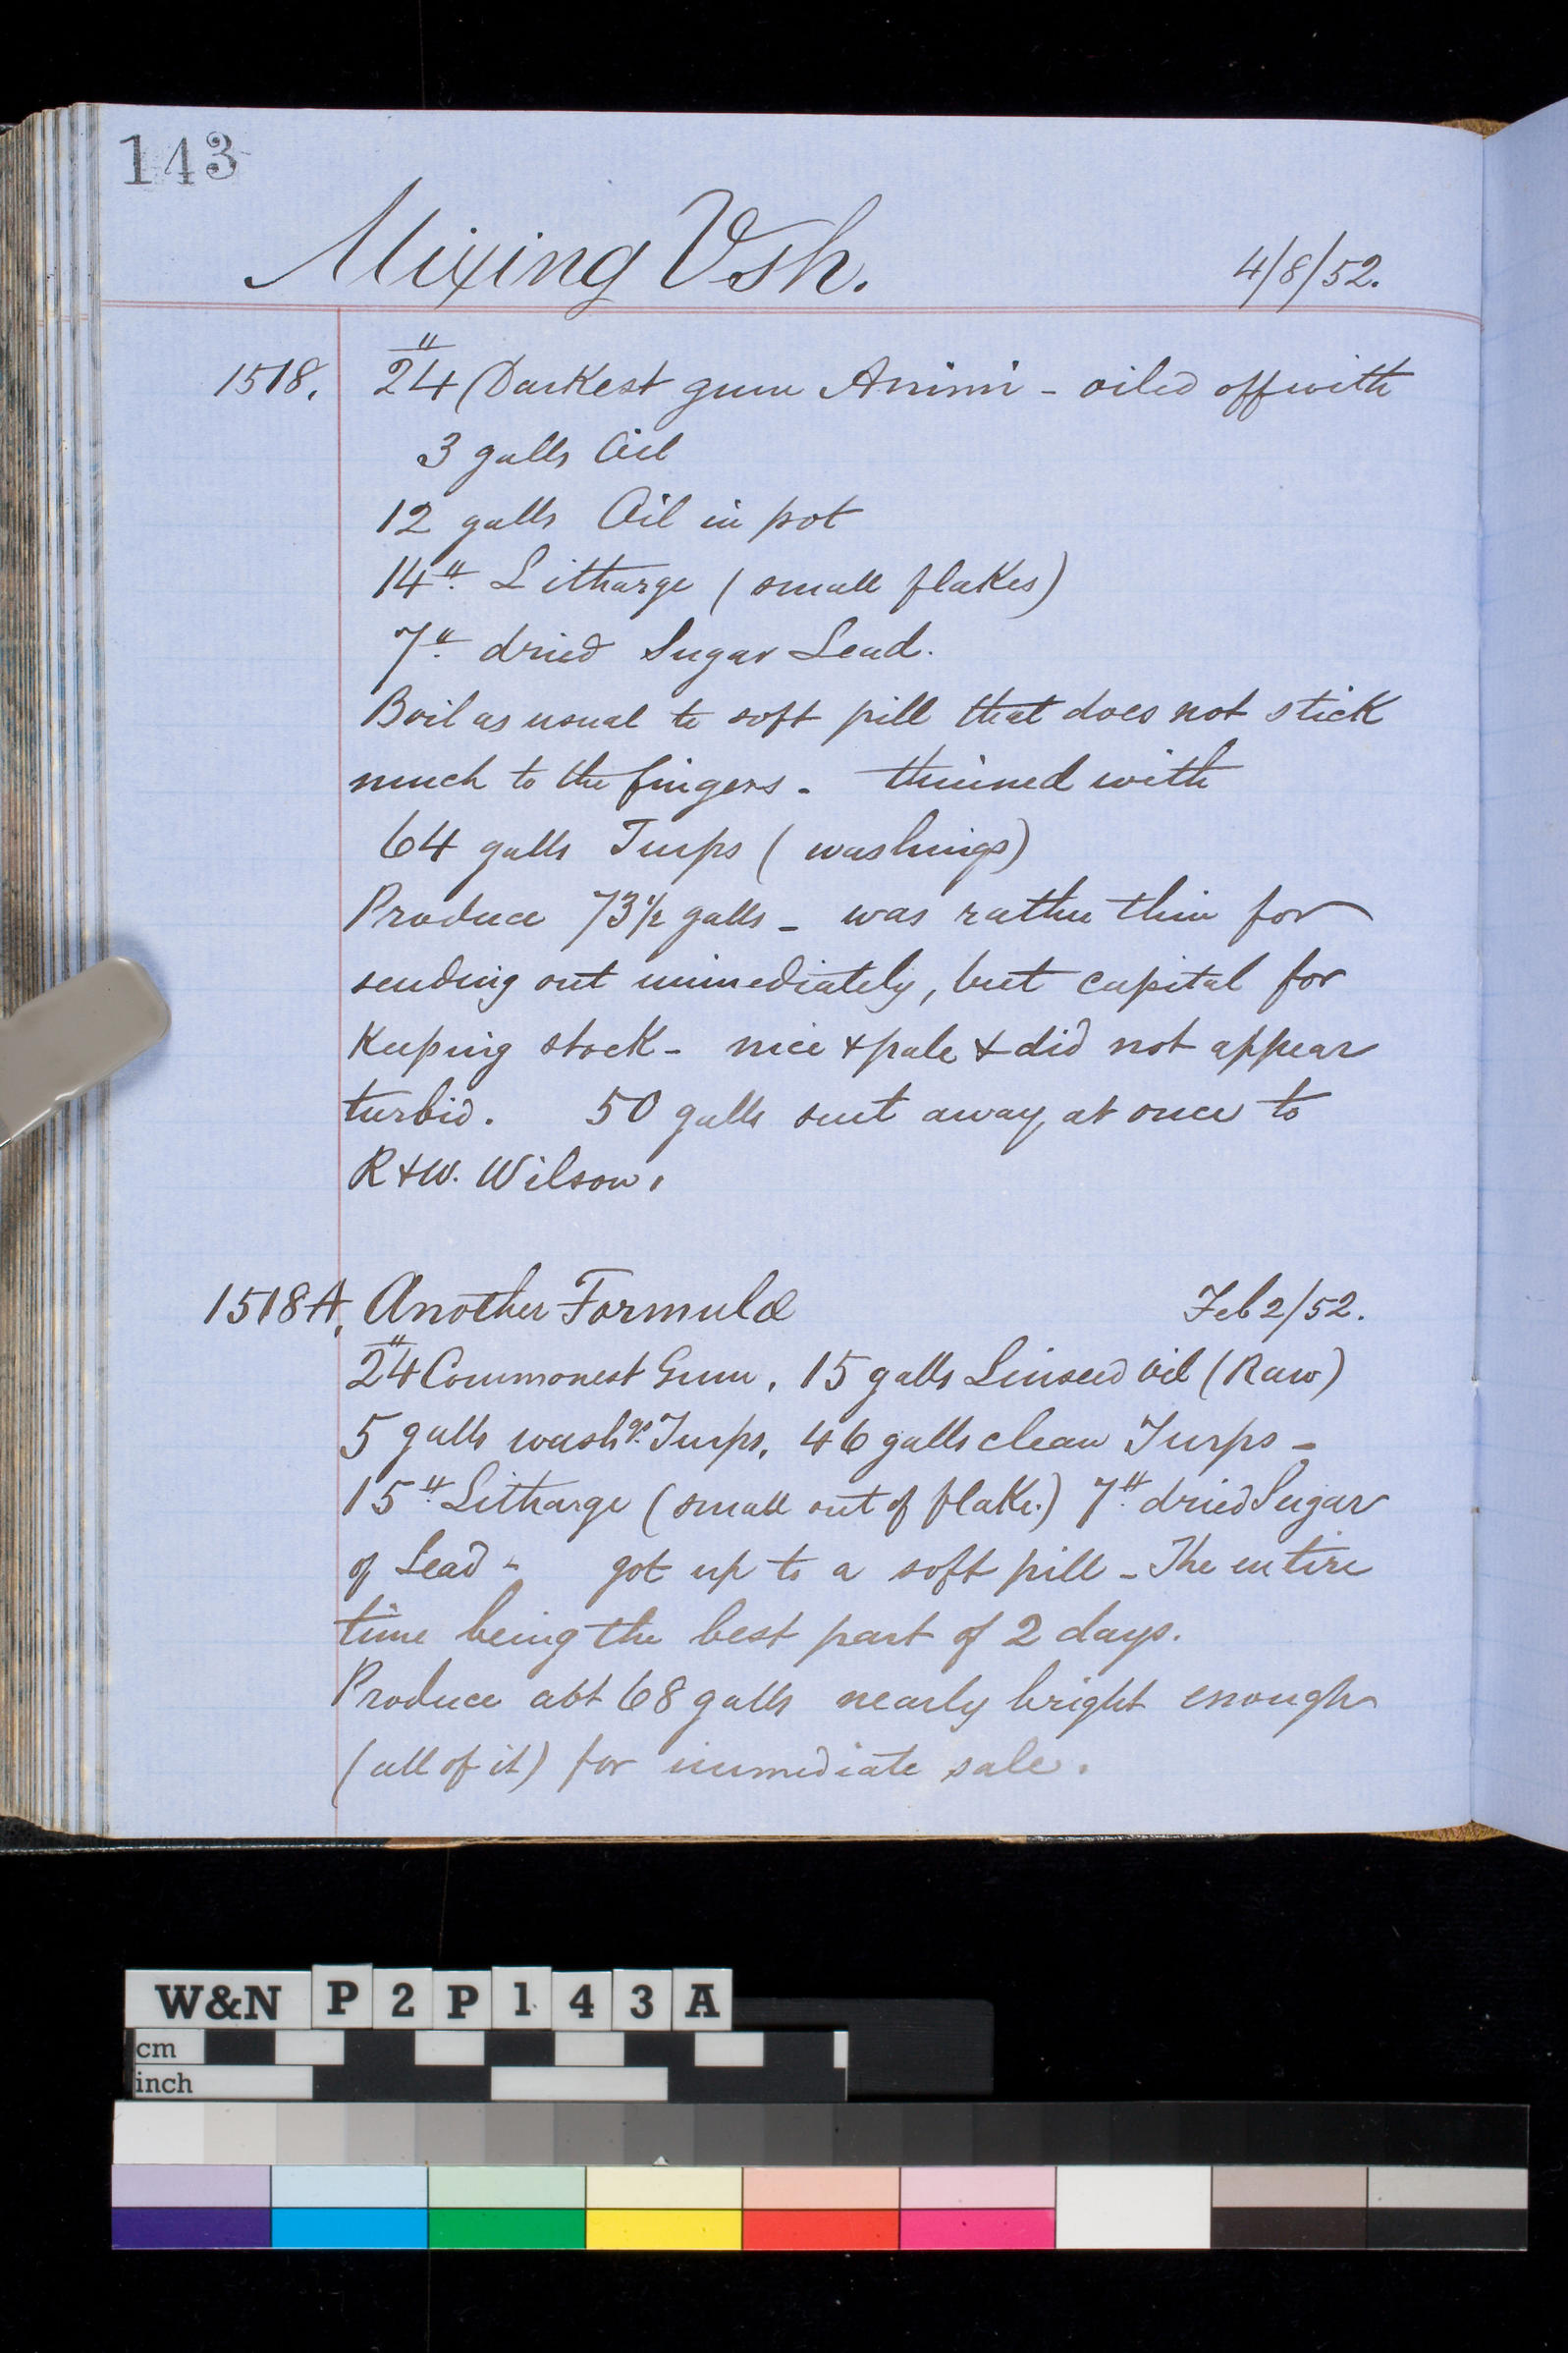 143
Mixing Vsh. 4/8/52.
1518. 24" Darkest gum Animi - oiled off with
3 galls Oil
12 galls Oil in pot
14" Litharge (small flakes)
7" dried Sugar Lead.
Boil as usual to soft pill that does not stick
much to the fingers - thinned with
64 galls Turps (washings)
Produce 73 1/2 galls - was rather thin for
sending out immediately, but capital for
Keeping stock - nice & pale & did not appear
turbid. 50 galls sent away at once to
R & W. Wilson.
1518A, Another Formula Feb 2/52.
24" Commonest Gum, 15 galls Linseed Oil (Raw)
5 galls washgs. Turps, 46 galls clean Turps -
15" Litharge (small out of flake.) 7" dried Sugar
of Lead - got up to a soft pill - The entire
time being the best part of 2 days.
Produce abt 68 galls nearly bright enough
(all of it) for immediate sale.
W&N P2P143A
cm
inch